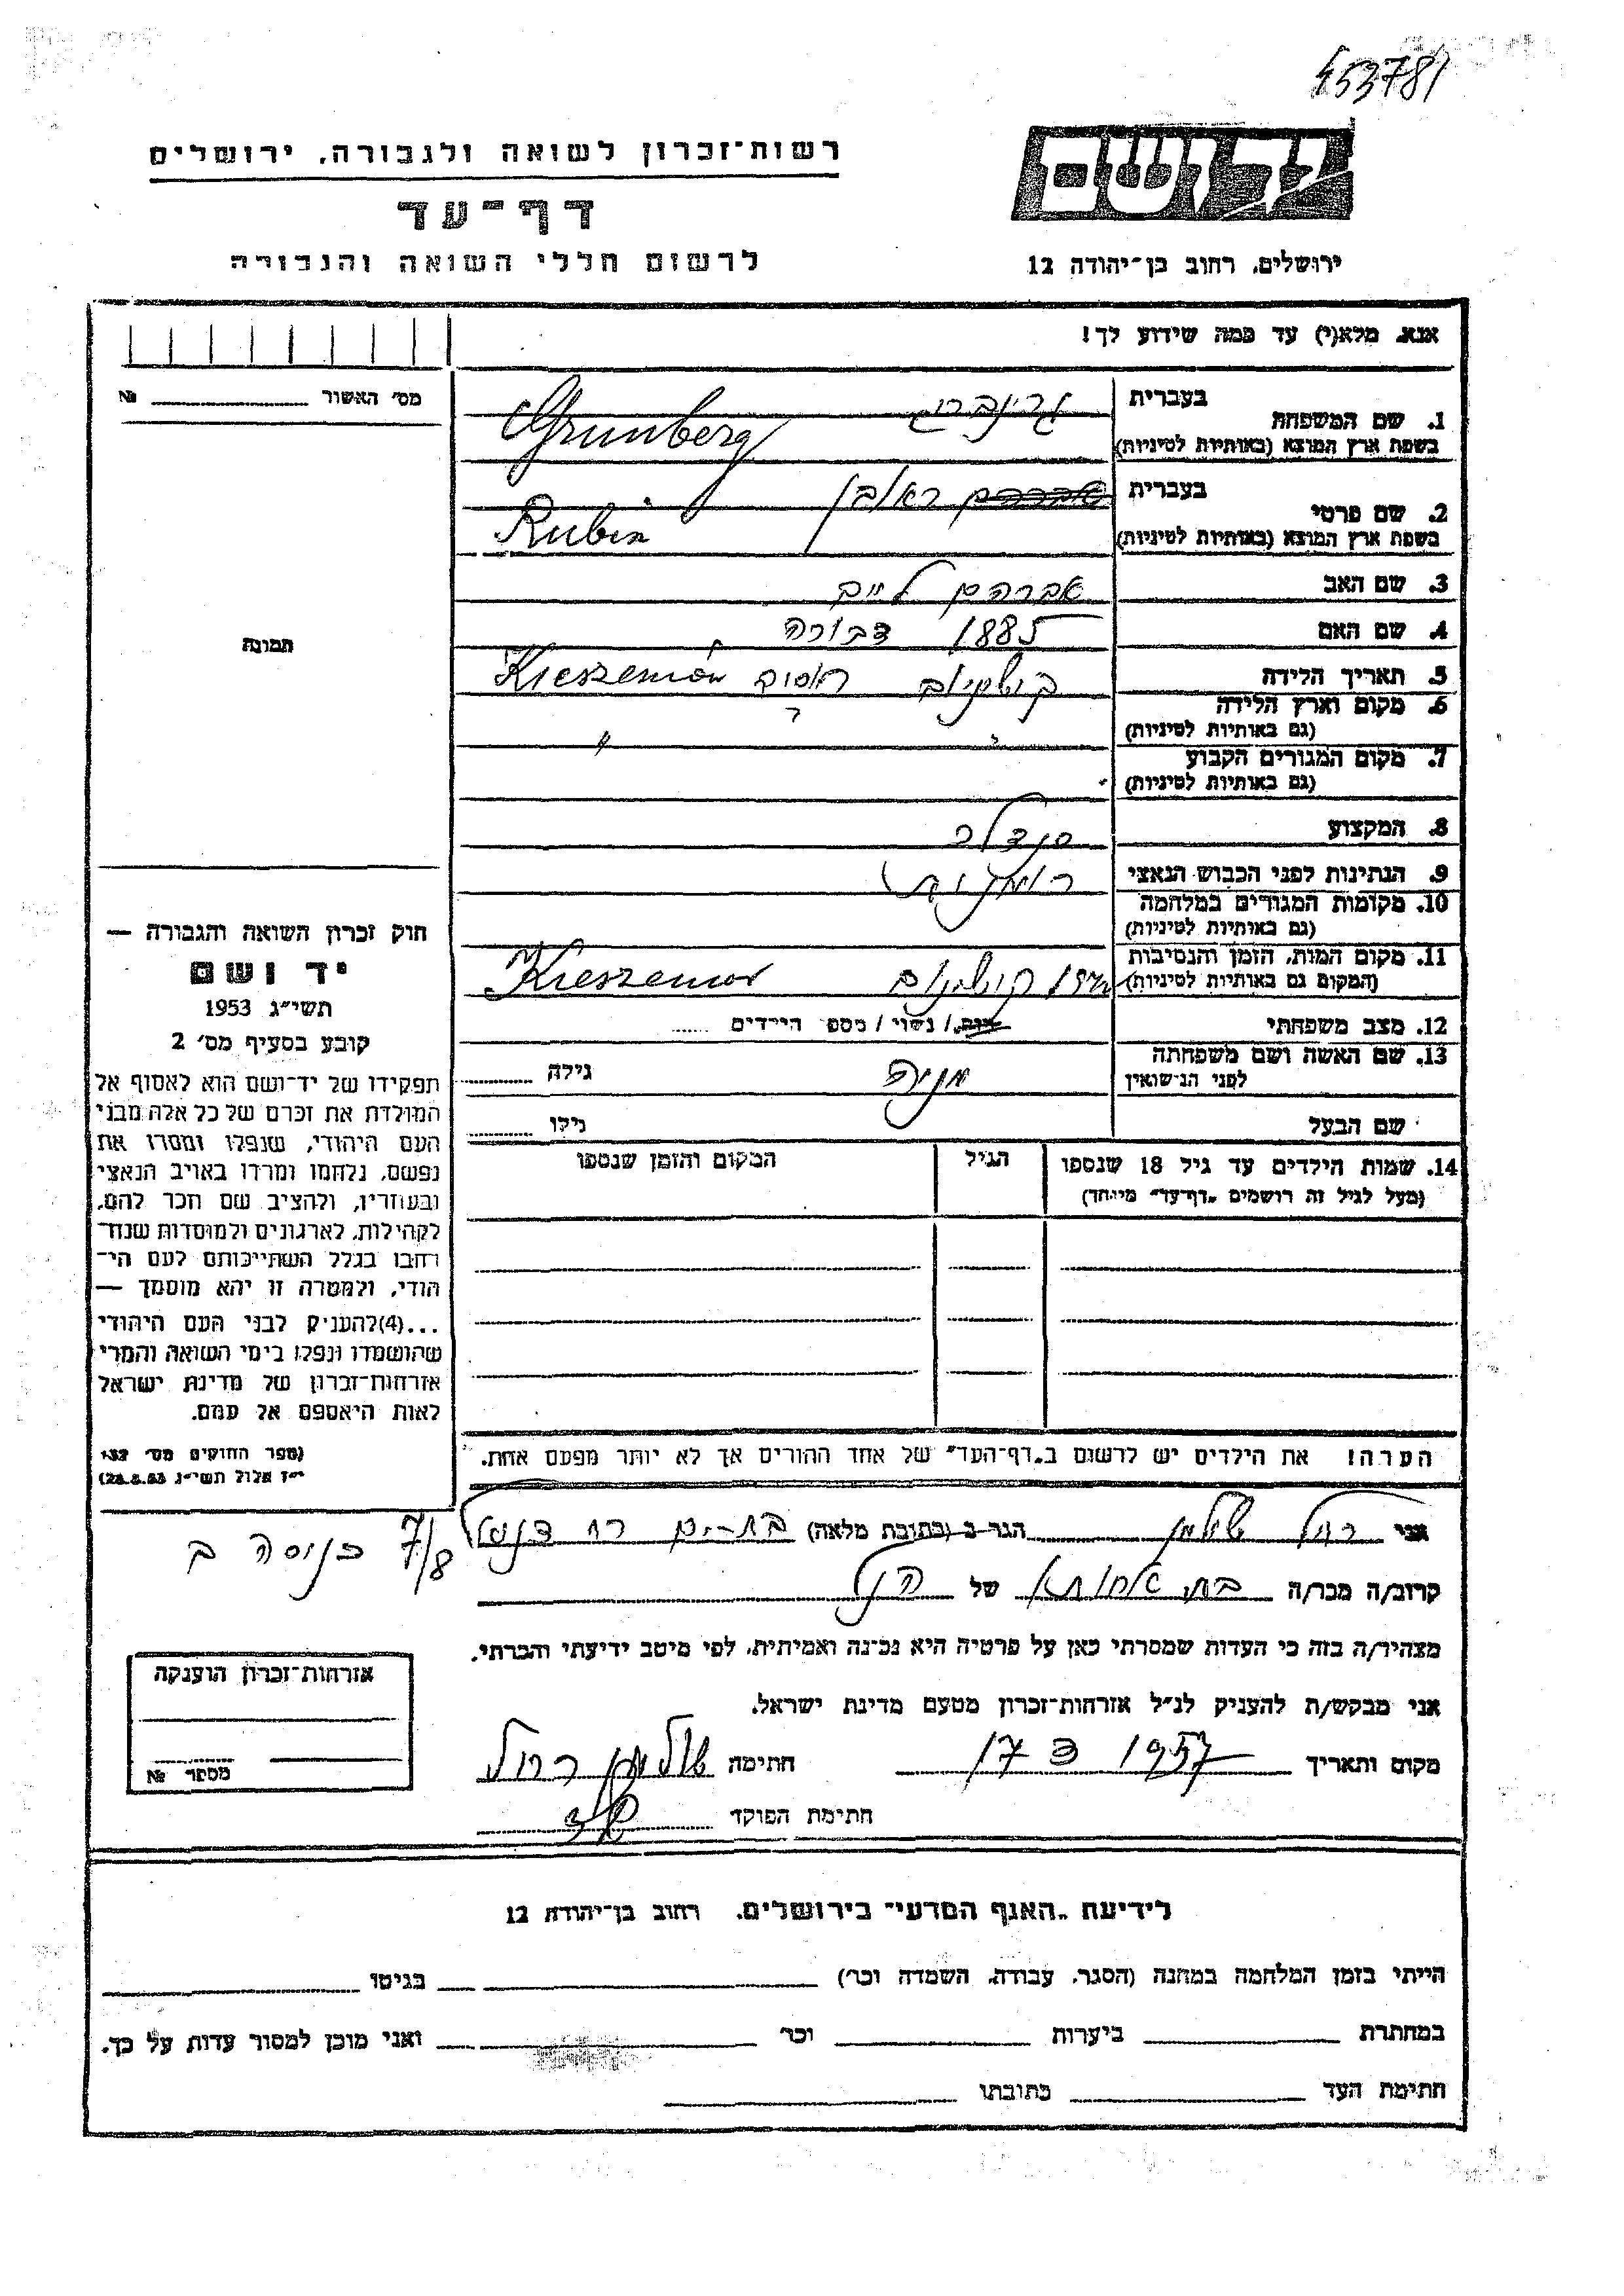 453781
יד ושם
רשות־זכרון לשואה ולגבורה, ירושלים
דף־עד
לרשום חללי השואה והגבורה
ירושלים, רחוב בן־יהודה 12
אנא, מלא(י) עד כמה שידוע לך!
מס׳ האשור № 
בעברית גרינברג
1. שם המשפחה
בשפת ארץ המוצא (באותיות לטיניות) Grünberg
בעברית אברהם ראובן
2. שם פרטי
בשפת ארץ המוצא (באותיות לטיניות) Rubin
3. שם האב אברהם לייב
4. שם האם דבורה
5. תאריך הלידה 1885
6. מקום וארץ הלידה
(גם באותיות לטיניות) Kieszeniów
7. מקום המגורים הקבוע "
(גם באותיות לטיניות)
8. המקצוע סנדלר
9. הנתינות לפני הכבוש הנאצי רומנית
10. מקומות המגורים במלחמה
(גם באותיות לטיניות)
11. מקום המות, הזמן והנסיבות
(המקום גם באותיות לטיניות) Kieszeniow
12. מצב משפחתי רווק / נשוי / מספר הילדים
13. שם האשה ושם משפחתה מניה גילה
לפני הנישואין
שם הבעל גילו
14. שמות הילדים עד גיל 18 שנספו הגיל המקום והזמן שנספו
(מעל לגיל זה רושמים „דף־עד" מיוחד)
הערה! את הילדים יש לרשום ב„דף־העד" של אחד ההורים אך לא יותר מפעם אחת.
תמונה
חוק זכרון השואה והגבורה —
יד ושם
תשי״ג 1953
קובע בסעיף מס׳ 2
תפקידו של יד־ושם הוא לאסוף אל
המולדת את זכרם של כל אלה מבני
העם היהודי, שנפלו ומסרו את
נפשם, נלחמו ומרדו באויב הנאצי
ובעוזריו, ולהציב שם וזכר להם,
לקהילות, לארגונים ולמוסדות שנח־
רבו בגלל השתייכותם לעם הי־
הודי, ולמטרה זו יהא מוסמך —
...(4)להעניק לבני העם היהודי
שהושמדו ונפלו בימי השואה והמרי
אזרחות־זכרון של מדינת ישראל
לאות היאספם אל עמם.
(ספר החוקים מס׳ 132
י״ז אלול תשי״ג 28.8.53)
אני רחל שולמן הגר ב (כתובת מלאה) בת-ים רח
7/8 כניסה ב
קרוב/ה מכר/ה בת אחותו של הנ"ל
מצהיר/ה בזה כי העדות שמסרתי כאן על פרטיה היא נכונה ואמיתית, לפי מיטב ידיעתי והכרתי.
אני מבקש/ת להעניק לנ״ל אזרחות־זכרון מטעם מדינת ישראל.
מקום ותאריך 17 3 1957 חתימה שולמן רחל
חתימת הפוקד
אזרחות־זכרון הוענקה
מספר №
לידיעת „האגף המדעי" בירושלים, רחוב בן־יהודה 12
הייתי בזמן המלחמה במחנה (הסגר, עבודה, השמדה וכו׳) בגיטו
במחתרת ביערות וכו׳ ואני מוכן למסור עדות על כך.
חתימת העד כתובתו